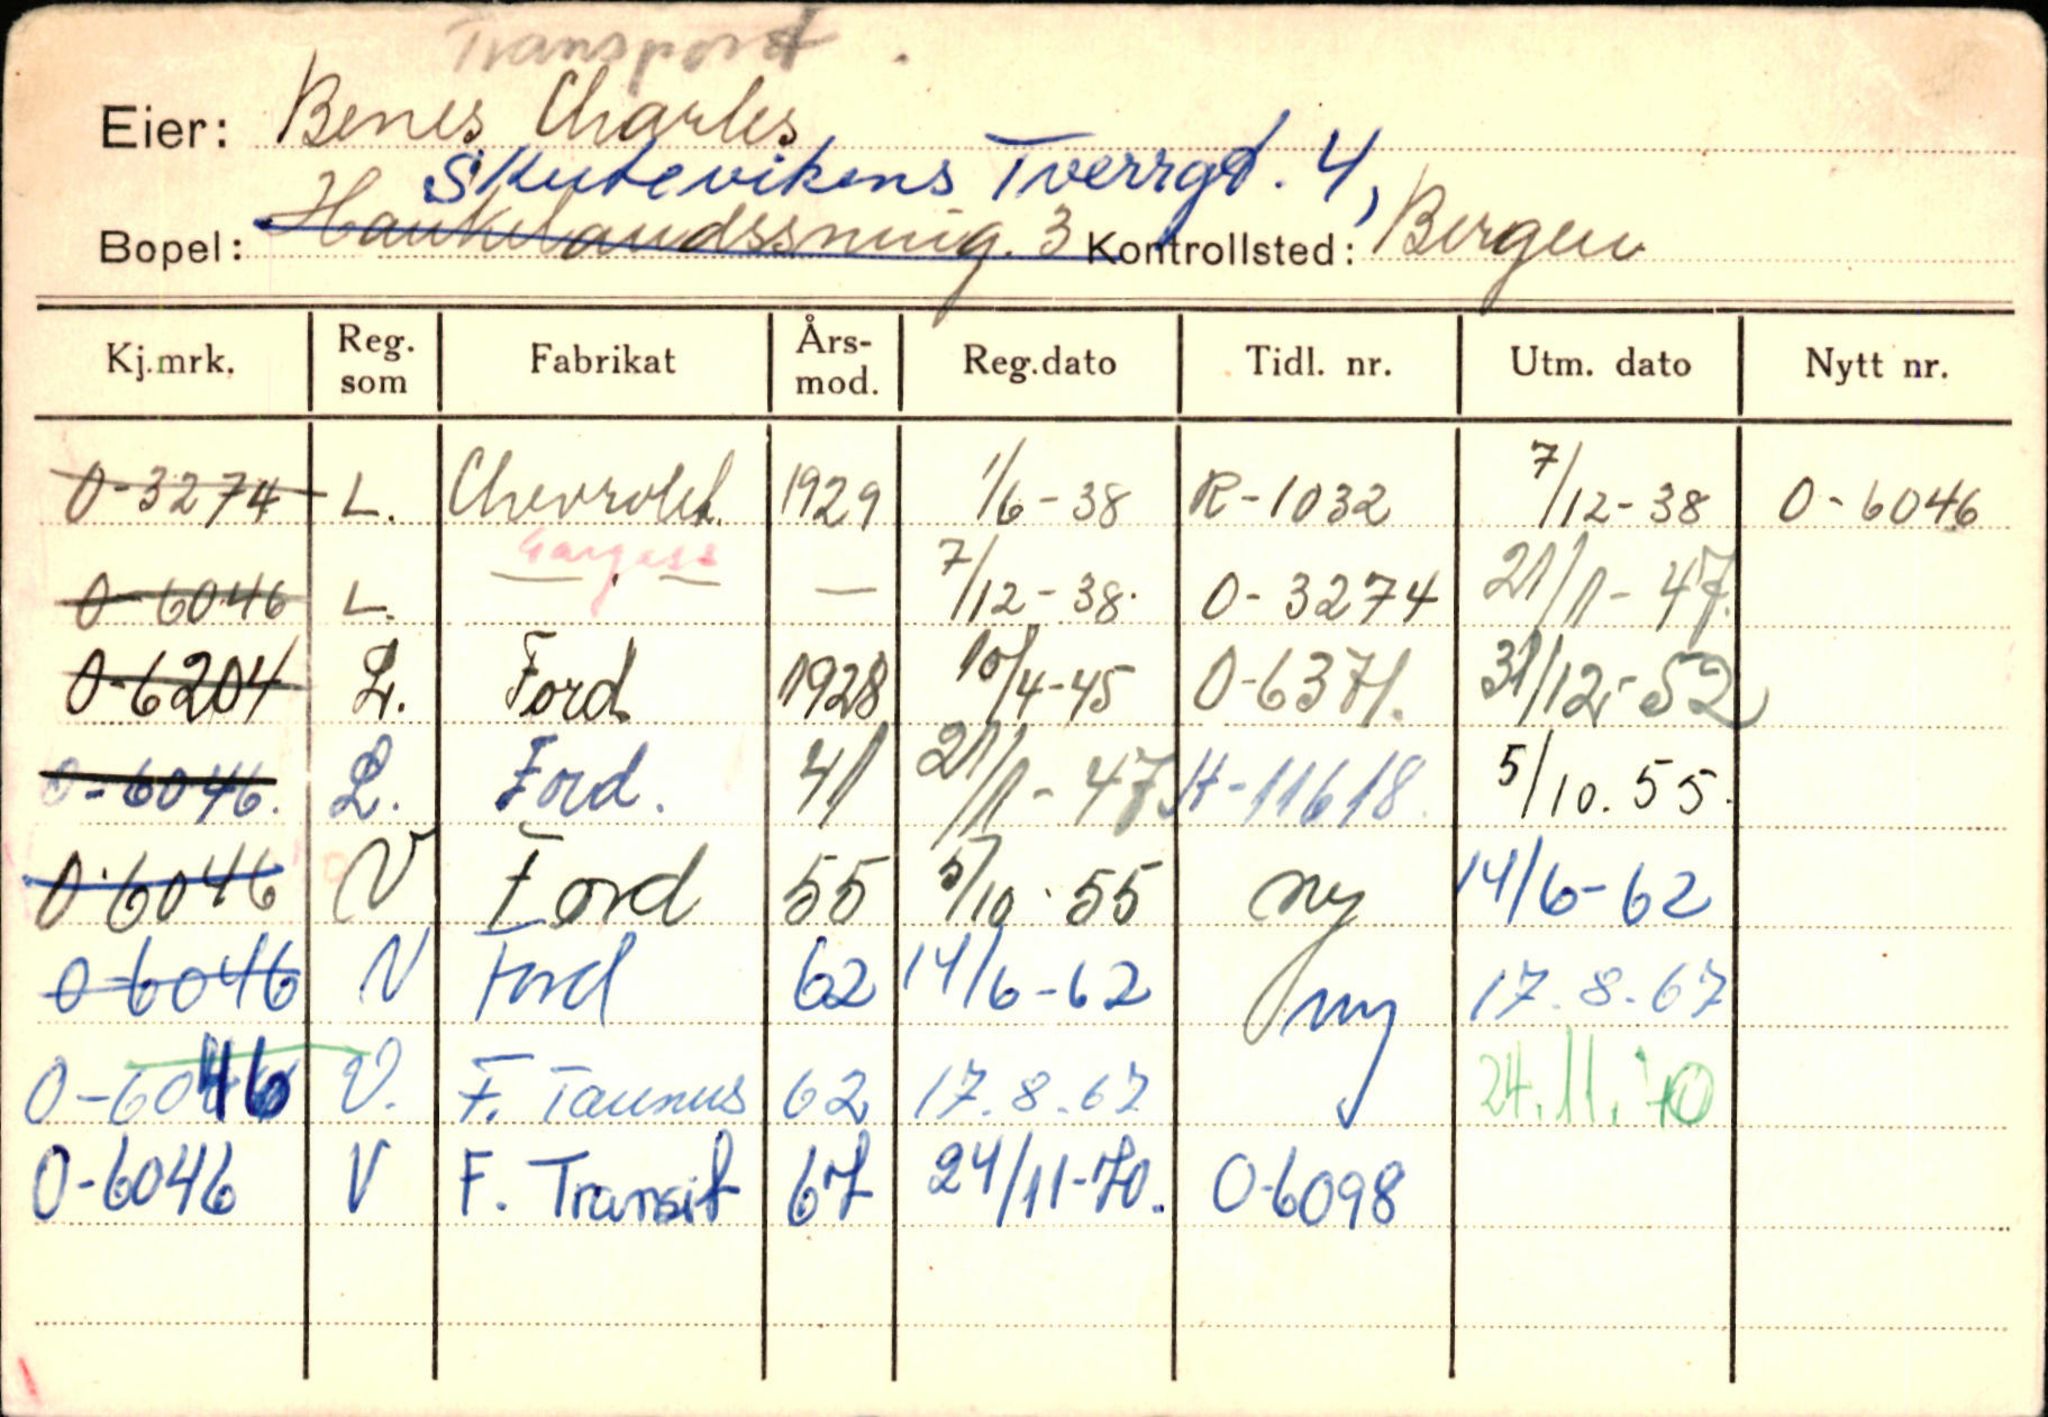 Transport.
Eier: Benes Charles
Skutevikens Tverrgt. 4,
Bopel: Haukelandssmug. 3 Kontrollsted: Bergen
Kj.mrk. Reg. som Fabrikat Års-mod. Reg.dato Tidl. nr. Utm. dato Nytt nr.
O-3274 L. Chevrolet. 1929 1/6-38 R-1032 7/12-38 O-6046
O-6046 L. — 〃 — — 7/12-38. O-3274 21/1-47.
O-6204 L. Ford 1928 10/4-45 O-6371. 31/12-52
O-6046. L. Ford. 41 21/1-47 H-11618. 5/10.55.
O-6046 V Ford 55 5/10-55 ny 14/6-62
O-6046 V Ford 62 14/6-62 ny 17.8.67
O-6046 V. F. Taunus 62 17.8.67 24.11.70
O-6046 V F. Transit 67 24/11-70. O-6098